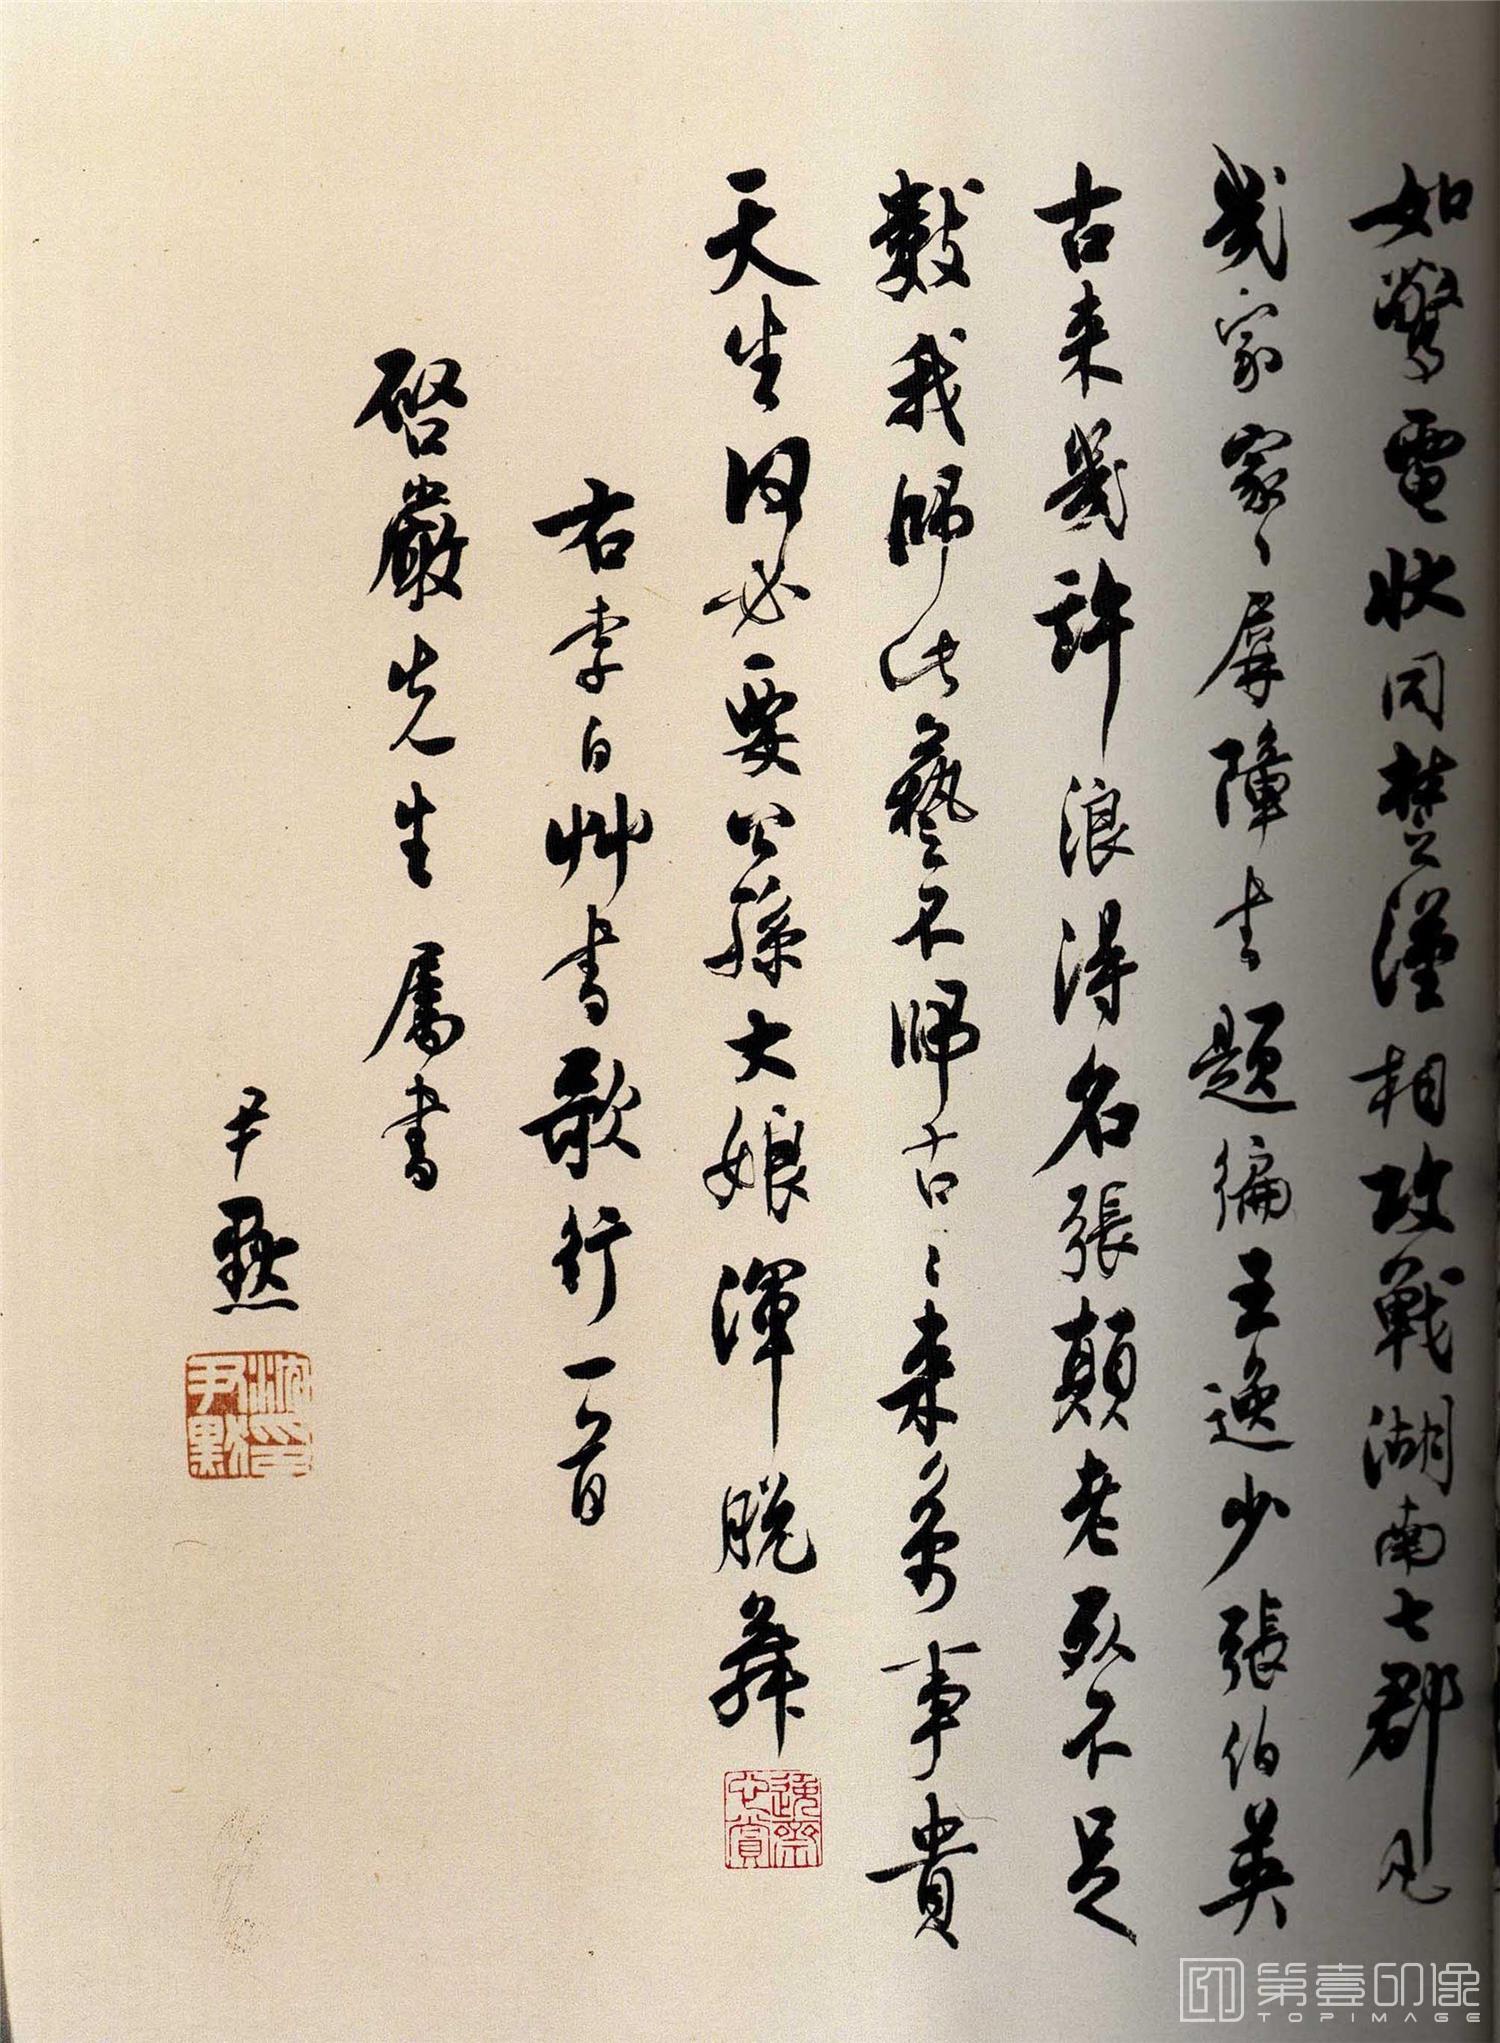 如驚電狀同楚漢相攻戰湖南七郡凡
幾家家〻屏障書題徧王逸少張伯英
古来幾許浪得名張顛老死不足
數我師此藝不師古古〻来萬事貴
天生何必要公孫大娘渾脱舞
右李白艸書歌行一首
啓嚴先生屬書
尹默
沈尹默印
第壹印像
TOPIMAGE